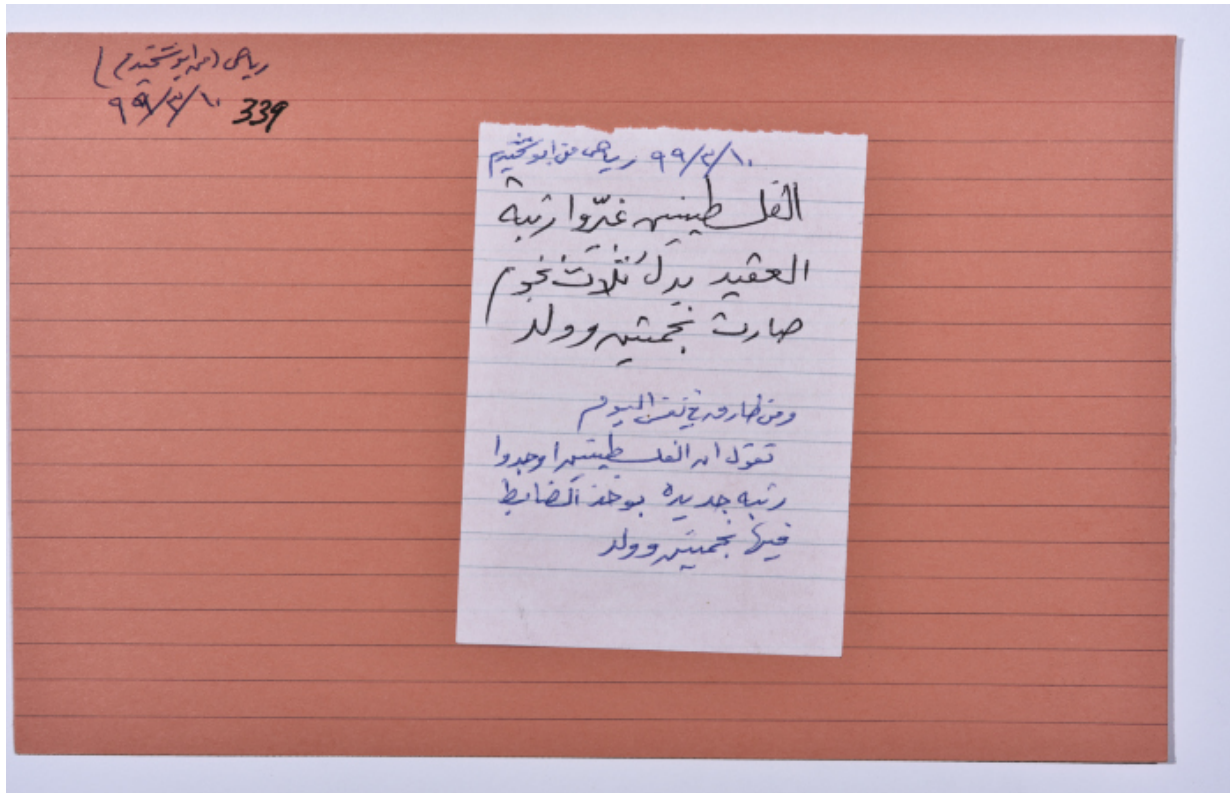 رياض (من ابو شخيدم)
٩٩/٣/١٠ 339
٩٩/٣/١٠ رياض من ابو شخيدم
الفلسطينيين غيّروا رتبة
العقيد بدل ثلاث نجوم
صارت نجمتين وولد
ومن طارق في نفس اليوم
تقول ان الفلسطينيين اوجدوا
رتبه جديده بوخذ الضابط
فيها نجمتين وولد